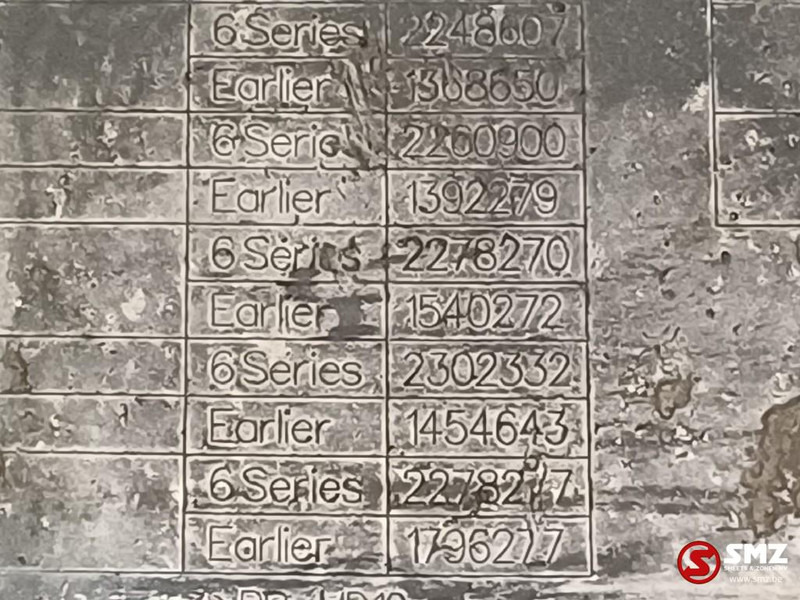 6 Series 2248607
Earlier 1368650
6 Series 2260900
Earlier 1392279
6 Series 2278270
Earlier 1540272
6 Series 2302332
Earlier 1454643
6 Series 2278277
Earlier 1796277
SMZ
www.smz.be